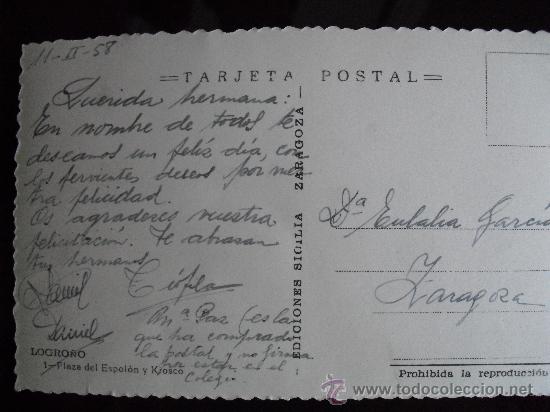 11-II-58
TARJETA POSTAL
Querida hermana:
En nombre de todos te
deseamos un feliz día, con
los fervientes deseos por vues
tra felicidad.
Os agradeces vuestra
felicitación. Te abrasan
tus hermanos
Daniel Teófila
Daniel
Mª Paz (es la
que ha comprado
la postal, y no firma
por estar en el
Colegio
LOGROÑO
1.-Plaza del Espolón y Kiosco
EDICIONES SICILIA ZARAGOZA
Dª Eulalia García
Zaragoza
Prohibida la reproducción
todocoleccion.net